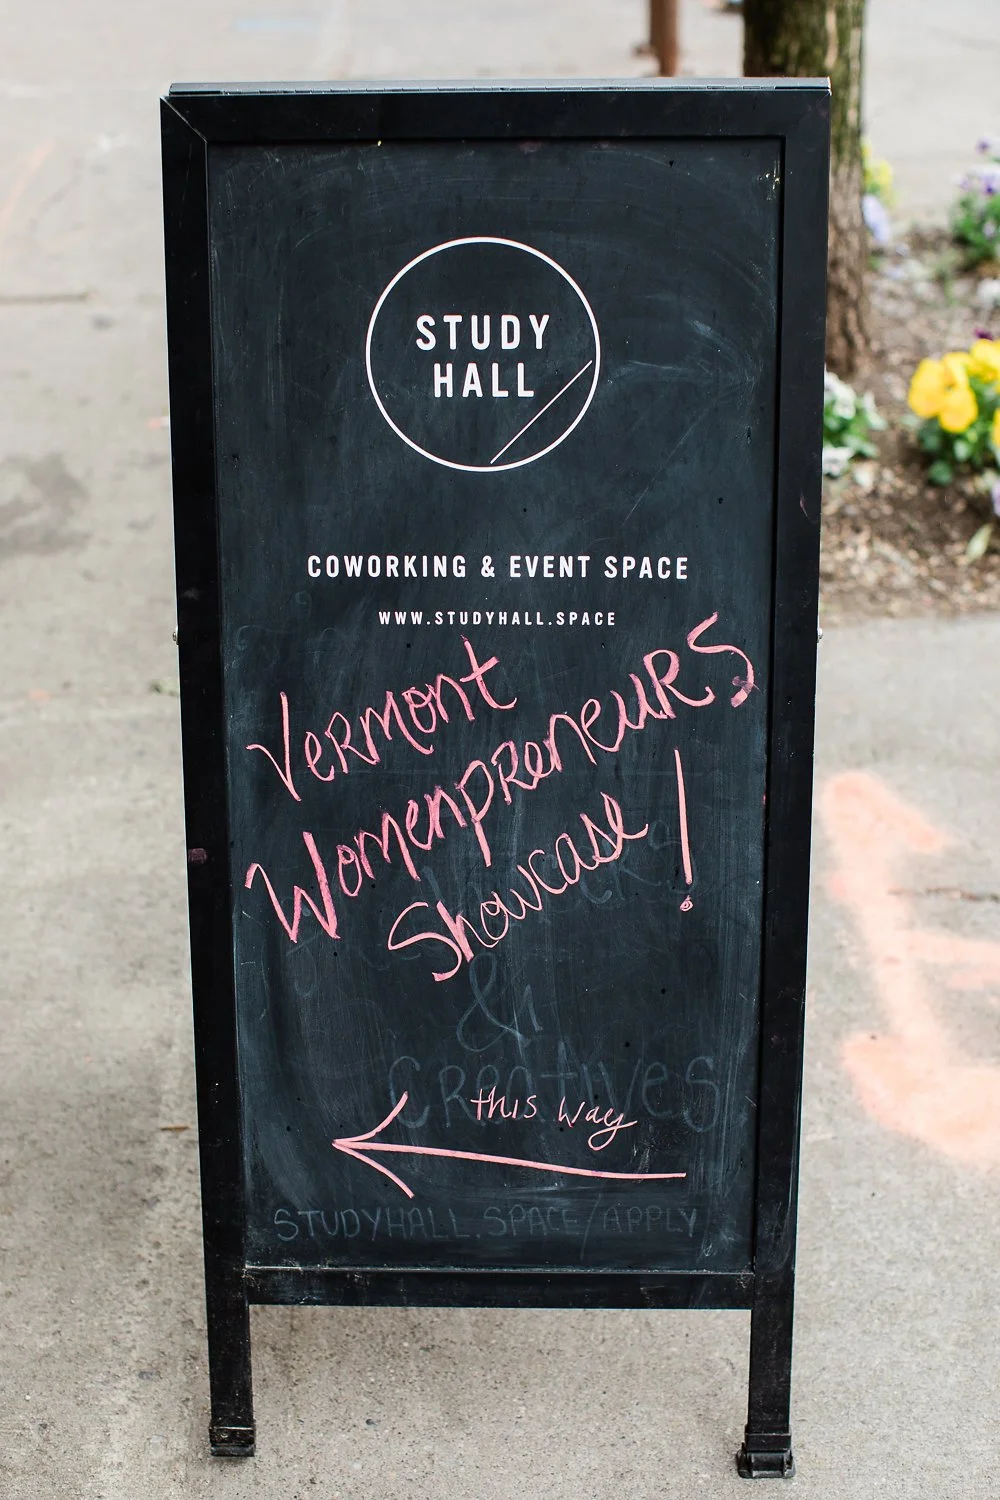 STUDY
HALL
COWORKING & EVENT SPACE
WWW.STUDYHALL.SPACE
Vermont
Womenpreneurs
Showcase!
&
CREATIVES
this way
STUDYHALL.SPACE/APPLY